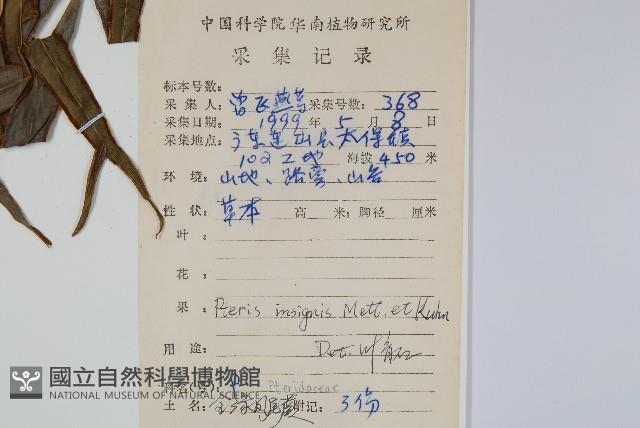 中国科学院华南植物研究所
采集记录
标本号数:
采集人: 曾飞燕等 采集号数: 368
采集日期: 1999年5月8日
采集地点: 广东连山县太保镇
102工地 海拔 450 米
环境: 山地、路旁、山谷
性状: 草本 高 米; 胸径 厘米
叶:
花:
果: Pteris insignis Mett. et Kuhn
用途: Det. 叶
Pteridaceae
土名: 附记: 3份
國立自然科學博物館
NATIONAL MUSEUM OF NATURAL SCIENCE